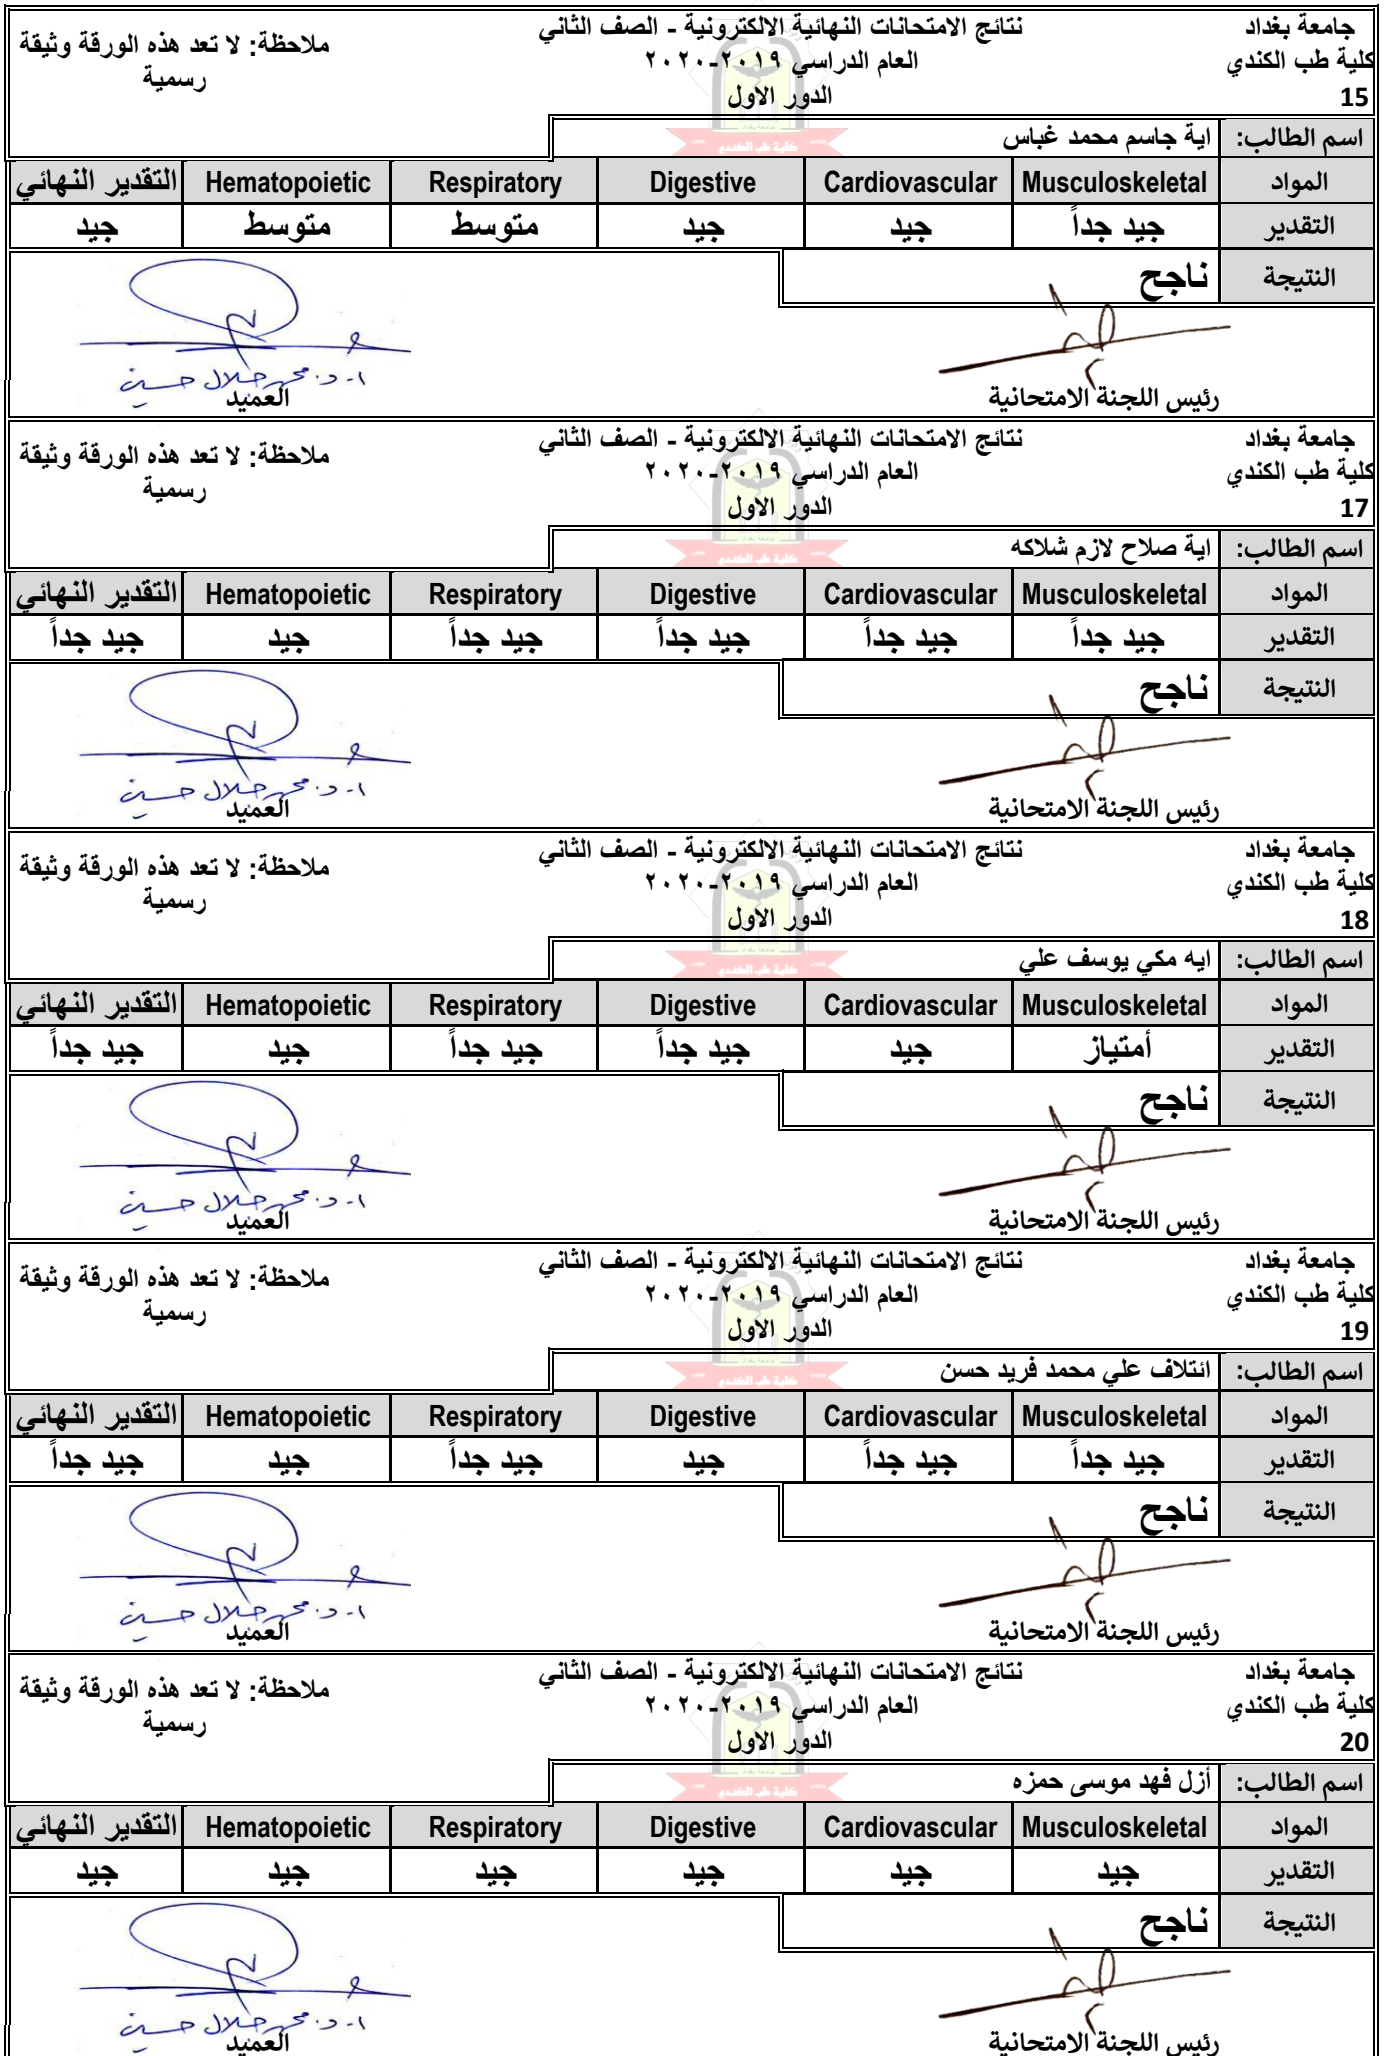 جامعة بغداد
كلية طب الكندي
15
نتائج الامتحانات النهائية الالكترونية - الصف الثاني
العام الدراسي ٢٠١٩-٢٠٢٠
الدور الاول
ملاحظة: لا تعد هذه الورقة وثيقة
رسمية
كلية طب الكندي
اسم الطالب: اية جاسم محمد غباس
المواد Musculoskeletal Cardiovascular Digestive Respiratory Hematopoietic التقدير النهائي
التقدير جيد جداً جيد جيد متوسط متوسط جيد
النتيجة ناجح
ا.د. محمد جلال حسين
رئيس اللجنة الامتحانية العميد
جامعة بغداد
كلية طب الكندي
17
نتائج الامتحانات النهائية الالكترونية - الصف الثاني
العام الدراسي ٢٠١٩-٢٠٢٠
الدور الاول
ملاحظة: لا تعد هذه الورقة وثيقة
رسمية
كلية طب الكندي
اسم الطالب: اية صلاح لازم شلاكه
المواد Musculoskeletal Cardiovascular Digestive Respiratory Hematopoietic التقدير النهائي
التقدير جيد جداً جيد جداً جيد جداً جيد جداً جيد جيد جداً
النتيجة ناجح
ا.د. محمد جلال حسين
رئيس اللجنة الامتحانية العميد
جامعة بغداد
كلية طب الكندي
18
نتائج الامتحانات النهائية الالكترونية - الصف الثاني
العام الدراسي ٢٠١٩-٢٠٢٠
الدور الاول
ملاحظة: لا تعد هذه الورقة وثيقة
رسمية
كلية طب الكندي
اسم الطالب: ايه مكي يوسف علي
المواد Musculoskeletal Cardiovascular Digestive Respiratory Hematopoietic التقدير النهائي
التقدير أمتياز جيد جيد جداً جيد جداً جيد جيد جداً
النتيجة ناجح
ا.د. محمد جلال حسين
رئيس اللجنة الامتحانية العميد
جامعة بغداد
كلية طب الكندي
19
نتائج الامتحانات النهائية الالكترونية - الصف الثاني
العام الدراسي ٢٠١٩-٢٠٢٠
الدور الاول
ملاحظة: لا تعد هذه الورقة وثيقة
رسمية
كلية طب الكندي
اسم الطالب: ائتلاف علي محمد فريد حسن
المواد Musculoskeletal Cardiovascular Digestive Respiratory Hematopoietic التقدير النهائي
التقدير جيد جداً جيد جداً جيد جيد جداً جيد جيد جداً
النتيجة ناجح
ا.د. محمد جلال حسين
رئيس اللجنة الامتحانية العميد
جامعة بغداد
كلية طب الكندي
20
نتائج الامتحانات النهائية الالكترونية - الصف الثاني
العام الدراسي ٢٠١٩-٢٠٢٠
الدور الاول
ملاحظة: لا تعد هذه الورقة وثيقة
رسمية
كلية طب الكندي
اسم الطالب: أزل فهد موسى حمزه
المواد Musculoskeletal Cardiovascular Digestive Respiratory Hematopoietic التقدير النهائي
التقدير جيد جيد جيد جيد جيد جيد
النتيجة ناجح
ا.د. محمد جلال حسين
رئيس اللجنة الامتحانية العميد